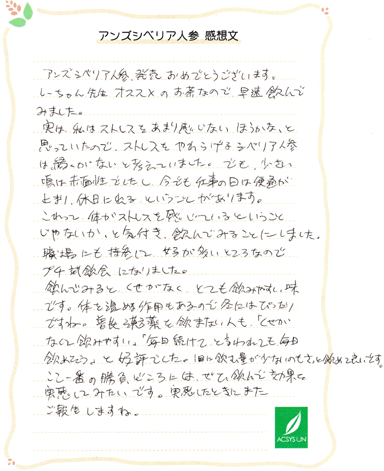 アンズシベリア人参 感想文
アンズシベリア人参、発売 おめでとうございます。
しーちゃん先生 オススメ のお茶なので、早速飲んで
みました。
実は、私はストレスを あまり感じない ほうかな、と
思っていたので、ストレスを やわらげる シベリア人参
は縁がないと考えていました。でも、小さい
頃は赤面性でしたし、今でも仕事の日は便通が
止まり、休日に出る ということがあります。
これって 体がストレスを感じているということ
じゃないか、と気付き、飲んでみることにしました。
職場にも持参して、女子が多いところなので
プチ試飲会 になりました。
飲んでみると くせがなく、とても飲みやすい味
です。体を温める作用もあるので冬にはぴったり
ですね。普段漢方薬を飲まない人も、「くせが
なくて飲みやすい」「毎日続けて、と言われても毎日
飲めそう」と好評でした。1回に飲む量が少ないのもさっと飲めて良いです。
ここ一番の勝負どころには、ぜひ飲んで効果を
実感してみたいです。実感したときにまた
ご報告しますね。
ACSYS UN